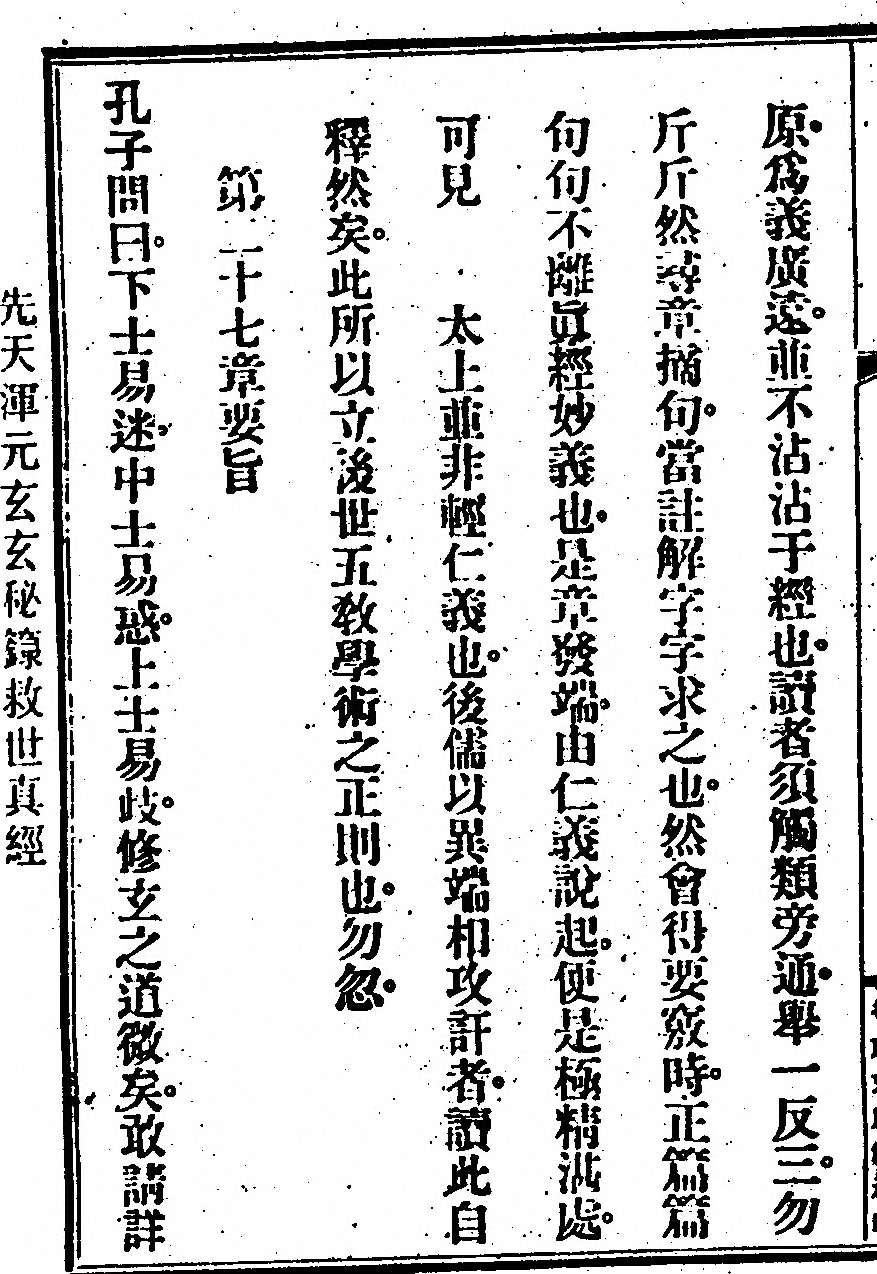 原。為義廣遠。並不沾沾于經也。讀者須觸類旁通。舉一反三。勿
斤斤然尋章摘句。當註解字字求之也。然會得要竅時。正篇篇
句句不離眞經妙義也。是章發端。由仁義說起。便是極精湛處。
可見　太上並非輕仁義也。後儒以異端相攻訐者。讀此自
釋然矣。此所以立後世五教學術之正則也。勿忽。
第二十七章要旨
孔子問曰。下士易迷。中士易惑。上士易歧。修玄之道微矣。敢請詳
先天渾元玄玄秘籙救世真經